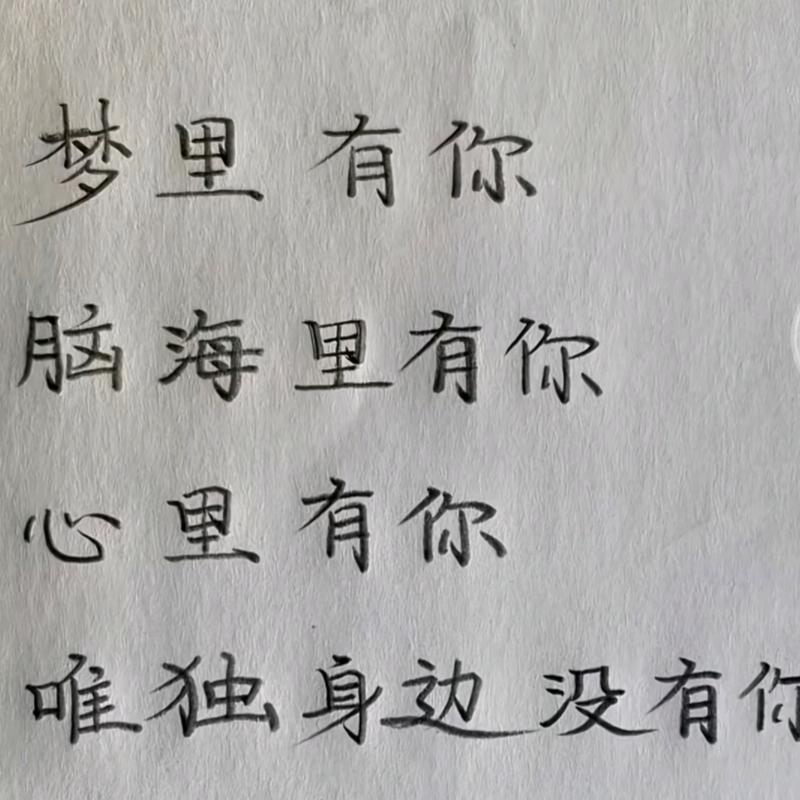 梦里有你
脑海里有你
心里有你
唯独身边没有你